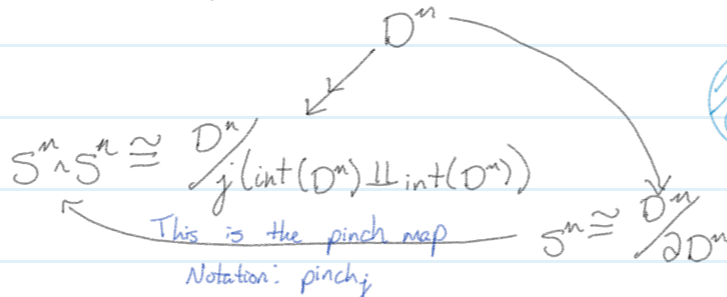 Dⁿ
Sⁿ ∧ Sⁿ ≅ Dⁿ/j(int(Dⁿ) ⨿ int(Dⁿ))
This is the pinch map
Sⁿ ≅ Dⁿ/∂Dⁿ
Notation: pinchⱼ